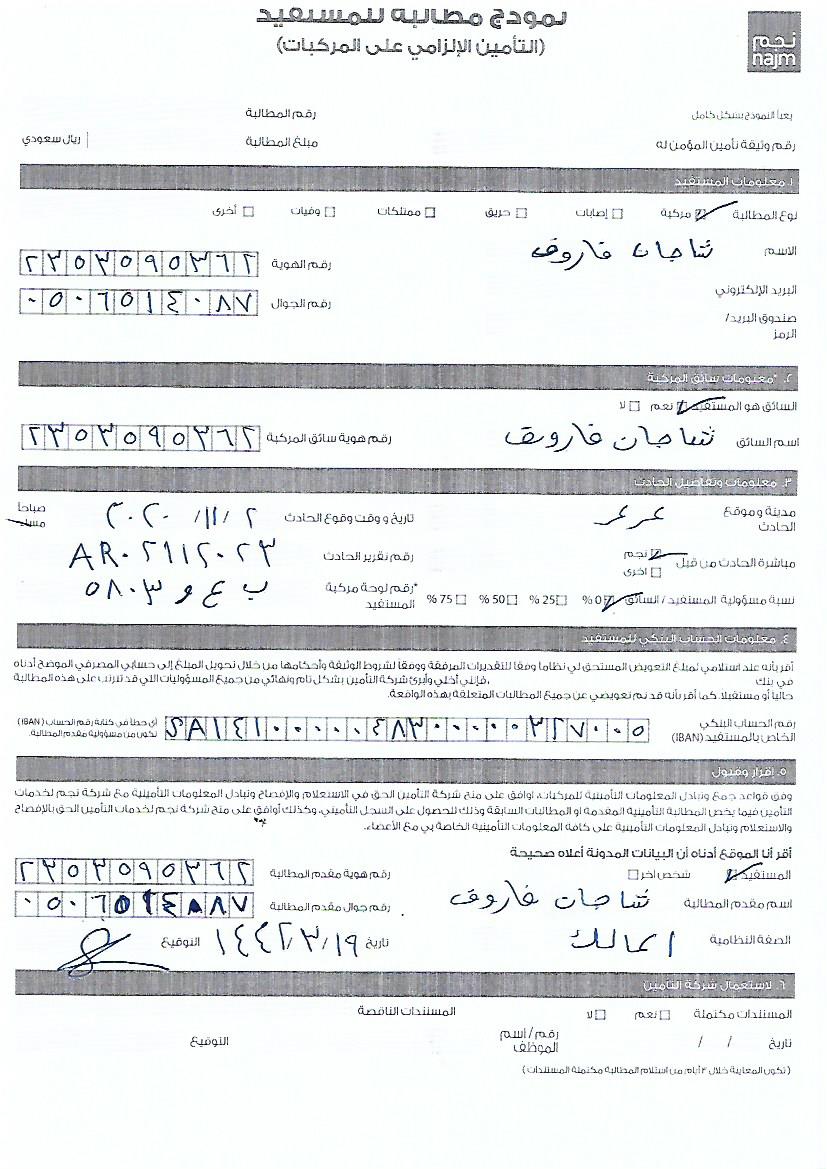 نموذج مطالبة للمستفيد
(التأمين الإلزامي على المركبات)
نجم
najm
يعبأ النموذج بشكل كامل
رقم المطالبة
رقم وثيقة تأمين المؤمن له
مبلغ المطالبة
ريال سعودي
١. معلومات المستفيد
نوع المطالبة مركبة إصابات حريق ممتلكات وفيات أخرى
الاسم شاجان فاروق
رقم الهوية ٢٣٥٣٥٩٥٣٦٢
البريد الإلكتروني
رقم الجوال ٠٥٠٦٥١٤٠٨٧
صندوق البريد/
الرمز
٢. *معلومات سائق المركبة
السائق هو المستفيد نعم لا
اسم السائق شاجان فاروق
رقم هوية سائق المركبة ٢٣٥٣٥٩٥٣٦٢
٣. معلومات وتفاصيل الحادث
مدينة وموقع الحادث عرعر
تاريخ و وقت وقوع الحادث ٢٠٢٠/١١/٢
صباحا
مساء
مباشرة الحادث من قبل نجم
اخرى
رقم تقرير الحادث AR٠٢١١٢٠٢٣
نسبة مسؤولية المستفيد / السائق 0% 25% 50% 75%
*رقم لوحة مركبة المستفيد ب ع و ٥٨٠٣
٤. معلومات الحساب البنكي للمستفيد
أقر بأنه عند استلامي لمبلغ التعويض المستحق لي نظاما وفقا للتقديرات المرفقة ووفقا لشروط الوثيقة وأحكامها من خلال تحويل المبلغ إلى حسابي المصرفي الموضح أدناه
في بنك ،فإنني أخلي وأبرئ شركة التأمين بشكل تام ونهائي من جميع المسؤوليات التي قد تترتب على هذه المطالبة
حاليا أو مستقبلا. كما أقر بأنه قد تم تعويضي عن جميع المطالبات المتعلقة بهذه الواقعة.
رقم الحساب البنكي
الخاص بالمستفيد (IBAN)
SA١٤١٠٠٠٠٠٤٨٣٠٠٠٠٠٣٢٧٠٠٥
أي خطأ في كتابة رقم الحساب (IBAN)
تكون من مسؤولية مقدم المطالبة.
٥. اقرار وقبول
وفق قواعد جمع وتبادل المعلومات التأمينية للمركبات، اوافق على منح شركة التأمين الحق في الاستعلام والإفصاح وتبادل المعلومات التأمينية مع شركة نجم لخدمات
التأمين فيما يخص المطالبة التأمينية المقدمة او المطالبات السابقة وذلك للحصول على السجل التأميني، وكذلك أوافق على منح شركة نجم لخدمات التأمين الحق بالإفصاح
والاستعلام وتبادل المعلومات التأمينية على كافة المعلومات التأمينية الخاصة بي مع الأعضاء.
أقر أنا الموقع أدناه أن البيانات المدونة أعلاه صحيحة
المستفيد شخص آخر
رقم هوية مقدم المطالبة ٢٣٥٣٥٩٥٣٦٢
اسم مقدم المطالبة شاجان فاروق
رقم جوال مقدم المطالبة ٠٥٠٦٥١٤٠٨٧
الصفة النظامية المالك
تاريخ ١٤٤٢/٣/١٩ التوقيع
٦. لاستعمال شركة التأمين
المستندات مكتملة نعم لا
المستندات الناقصة
تاريخ / /
رقم/ أسم الموظف
التوقيع
(تكون المعاينة خلال ٣ أيام من استلام المطالبة مكتملة المستندات)